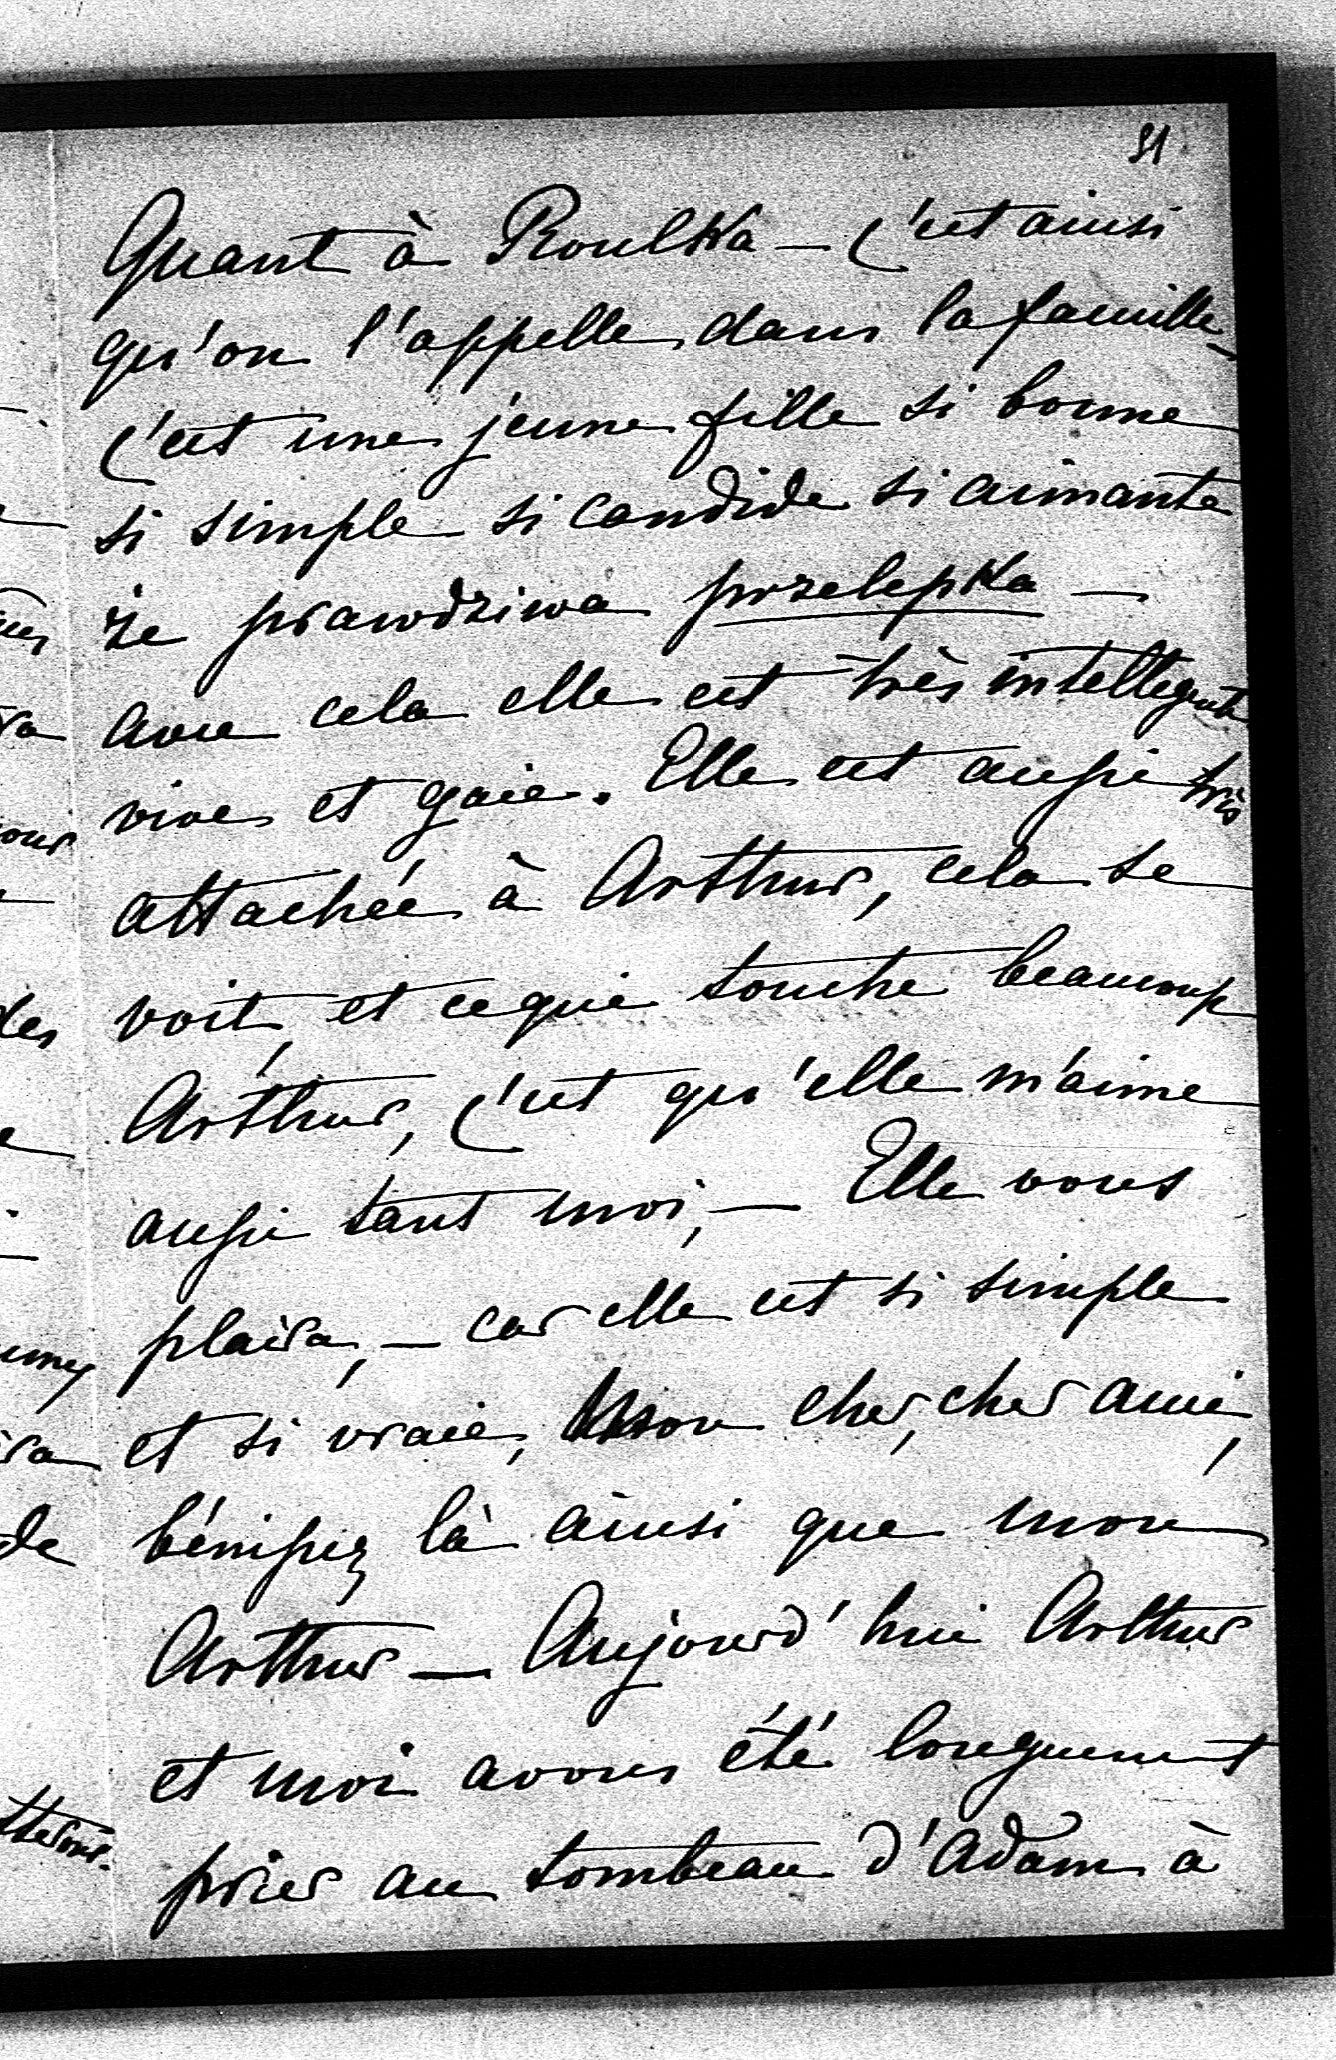 51
Quant à Roulka — c'est ainsi
qu'on l'appelle dans la famille —
c'est une jeune fille si bonne
si simple si candide si aimante
że prawdziwa przelepka —
avec cela elle est très intellegente
vive et gaie. Elle est aussi très
attachée à Arthur, cela se
voit, et ce qui touche beaucoup
Arthur, c'est qu'elle m'aime
aussi tant moi, — Elle vous
plaira, — car elle est si simple
et si vraie, Mon cher, cher ami,
bénissez là ainsi que mon
Arthur — Aujourd'hui Arthur
et moi avons été longuement
prier au tombeau d'Adam à